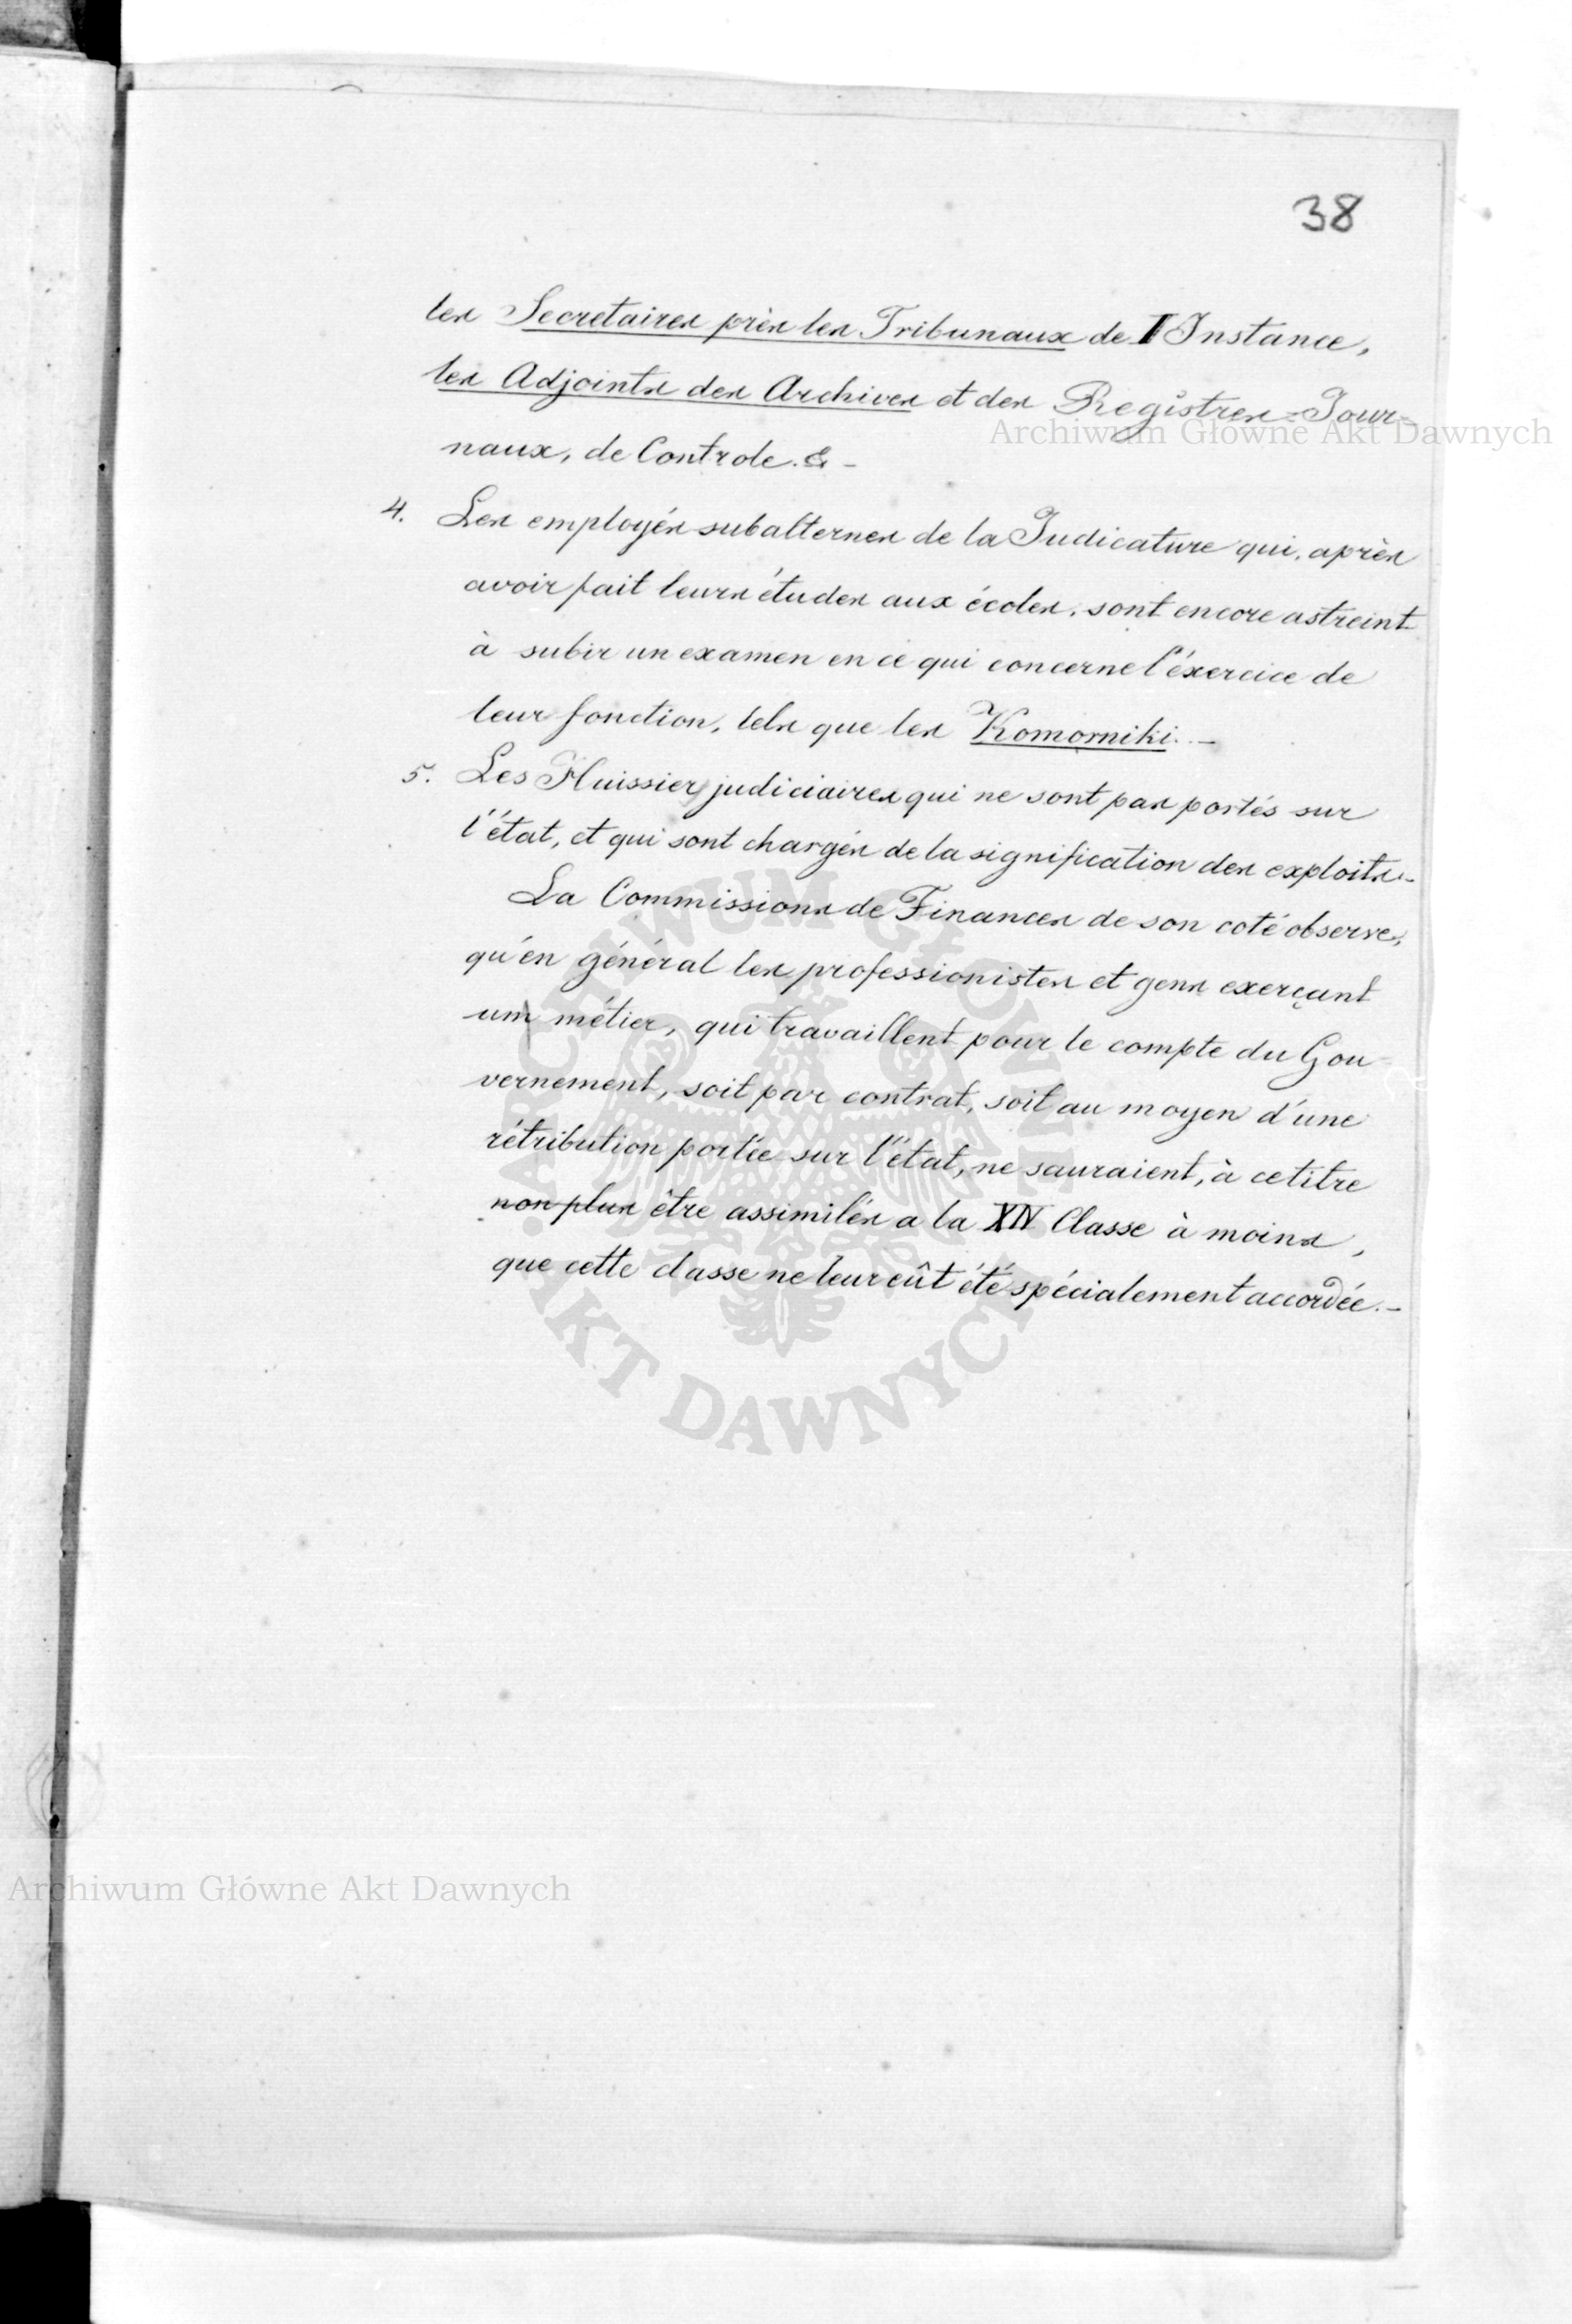 38
les Secretaires près les Tribunaux de I Instance,
les Adjoints des Archives et des Registres=Jour=
naux, de Controle. & -
4. Les employés subalternes de la Judicature qui, après
avoir fait leurs études aux écoles, sont encore astreint
à subir un examen en ce qui concerne l'éxercice de
leur fonction, tels que les Komorniki. -
5. Les Huissiers judiciaires qui ne sont pas portés sur
l'état, et qui sont chargés de la signification des exploits.-
La Commissions de Finances de son coté observe,
qu'en général les professionistes et gens exerçant
un métier, qui travaillent pour le compte du Gou-
vernement, soit par contrat, soit au moyen d'une
rétribution portée sur l'état, ne sauraient, à ce titre
non plus être assimilés a la XIV Classe à moins,
que cette classe ne leur eût été spécialement accordée.-
Archiwum Główne Akt Dawnych
ARCHIWUM GŁÓWNE
AKT DAWNYCH
Archiwum Główne Akt Dawnych